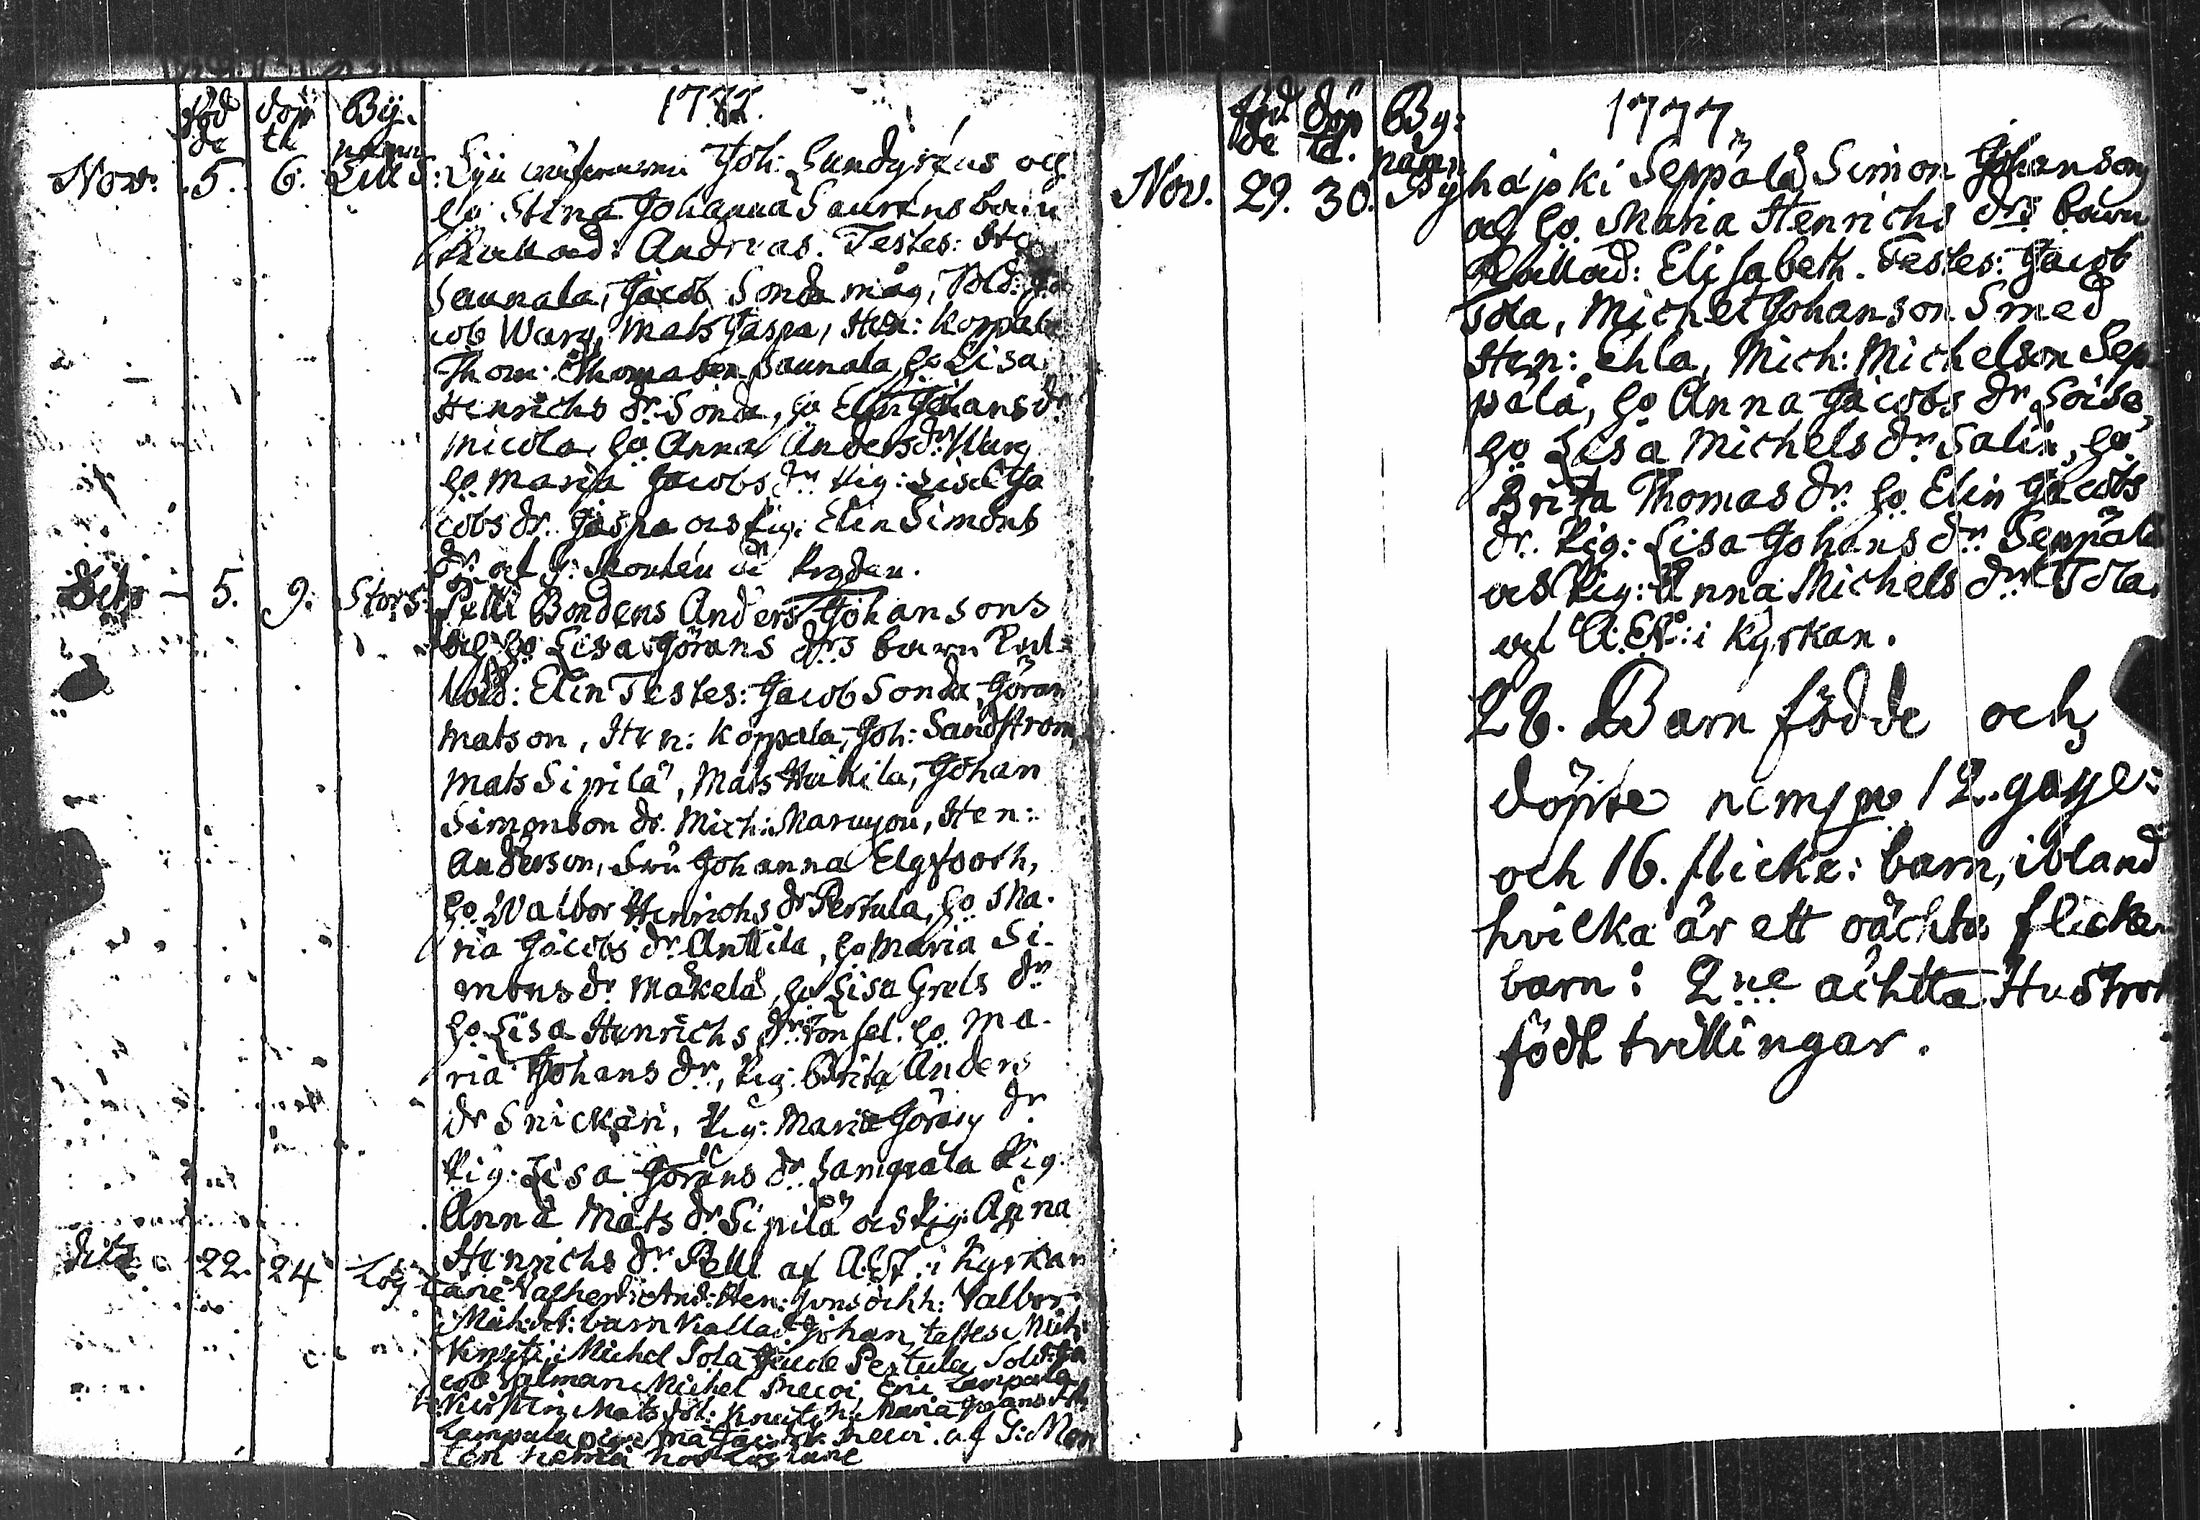 föd
de
döp
te
By:
namn
1777.
Nov: 5. 6. Joh: Lundgréns och
ho: Stina Johanna Lauréns barn
Kallad: Andreas. Testes: Hen
Saunala, Jacob Sonda måg, Sold: Ja
cob Warg, Mats Jaspa, Hen: Korpala
Thom: Thomason Saunala, ho Lisa
Henrichs dr Sonda, ho Elin Johans dr
Micola, ho Anna Anders dr Warg
ho Maria Jacobs dr Pig: Lisa Ja
cobs dr. Jaspa och Pig: Elin Simons
dr af G: Montén i Kyrkan.
Dito - 5. 9. Stors:
Pelli Bondens Anders Johansons
och ho Lisa Görans drs barn Kal=
lad: Elin Testes: Jacob Sonda, Göran
Matson, Hen: Korpala, Joh: Sandstrom,
Mats Sipilä, Mats Hukila, Johan
Simonson dr. Mich: Hen:
Anderson, Fru Johanna Elgfooth,
ho. Walbor Henrichs dr Pertula, ho Ma-
ria Jacobs dr Anttila, ho Maria Si-
mons dr Mäkelä, ho Lisa Grels dr
ho Lisa Henrichs dr Tonsel. ho Ma-
ria Johans dr, Pig: Brita Anders
dr Snickari, Pig: Maria Görans dr
Pig: Lisa Görans dr Lampala Pig:
Anna Mats dr Sipilä och Pig: Anna
Henrichs dr Pelli af A:EF: i Kyrkan
Dito 22. 24 Lög
And: Hen: sons och h: Valbor
Mich: dt: barn Kallad: Johan, testes: Mich:
Knuti, Michel Sola Jacob Pertula, Sold: Ja
cob Michel Eric Lampala
Kirstin Mats dt: Knuti, h: Maria Johans dt:
Lampala af G: Mon
tén hemma hos
föd
de
döp
te.
By:
namn
1777
Nov. 29. 30. Hyhäjoki Seppälä Simon Johansons
och ho. Maria Henrichs drs barn
Kallad: Elisabeth. Testes: Jacob
Tola, Michel Johanson Smed
Hen: Ehla, Mich: Michelson Sep
pälä, ho Anna Jacobs dr Soise,
ho Lisa Michels dr Salin, ho
Brita Thomas dr. ho Elin Jacobs
dr. Pig: Lisa Johans dr Seppälä
och Pig: Anna Michels dr Tola
af A:EF: i Kyrkan.
28. Barn födde och
döpte nempe 12. gosse:
och 16. flicke: barn, ibland
hvilka är ett oächta flicke
barn: 2ne ächtta Hustror
födt trillingar.